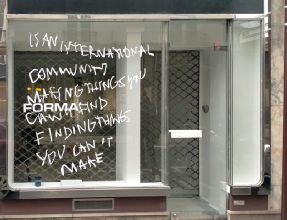 IS AN INTERNATIONAL
COMMUNITY
MAKING THINGS YOU
FORMA
CAN'T FIND
FINDING THINGS
YOU CAN'T
MAKE